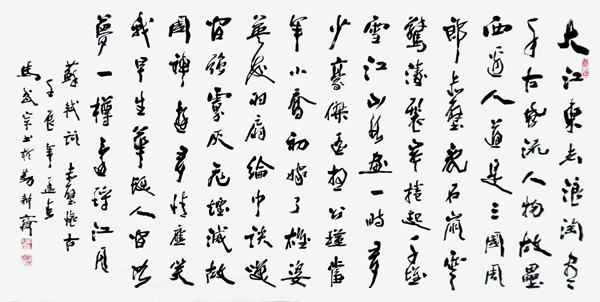 大江東去浪淘盡
千古風流人物故壘
西邊人道是三國周
郎赤壁亂石崩雲
驚濤裂岸捲起千堆
雪江山如畫一時多
少豪傑遙想公瑾當
年小喬初嫁了雄姿
英發羽扇綸巾談笑
間強虜灰飛煙滅故
國神遊多情應笑
我早生華髮人間如
夢一樽還酹江月
蘇軾詞赤壁懷古
壬辰年
馬武宗書於勤耕齋